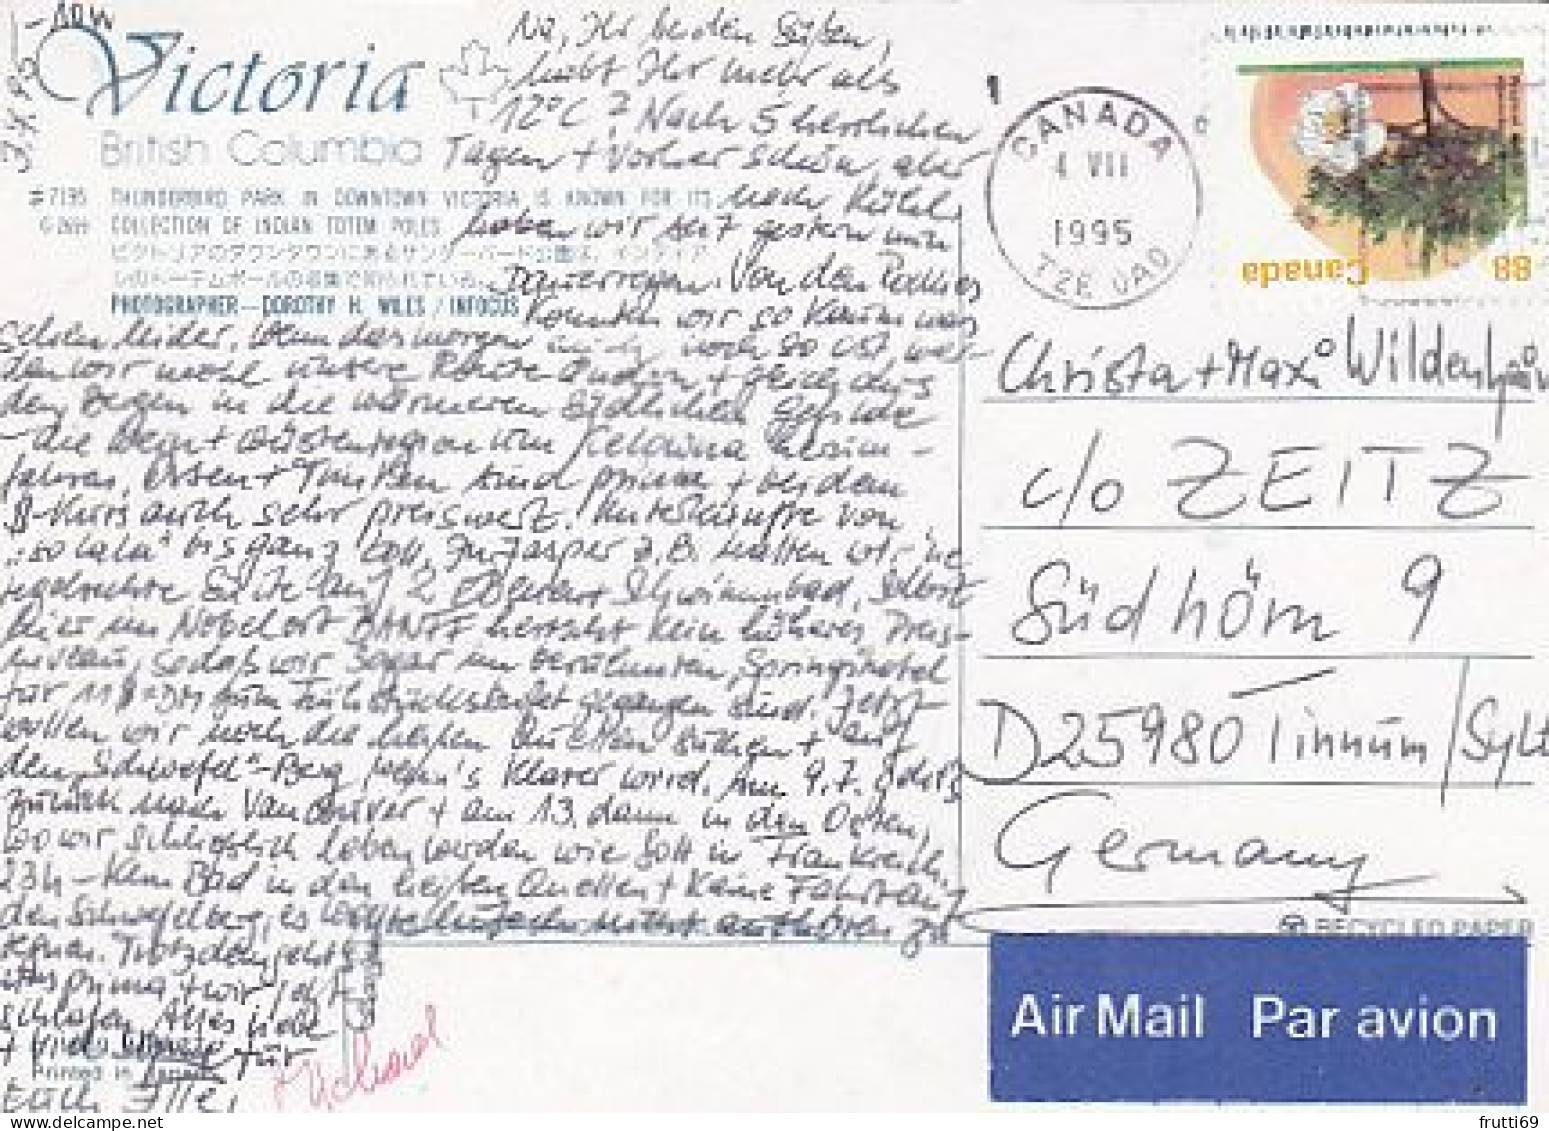 Victoria
British Columbia
# 7195 THUNDERBIRD PARK IN DOWNTOWN VICTORIA IS KNOWN FOR ITS
G 2699 COLLECTION OF INDIAN TOTEM POLES
ビクトリアのダウンタウンにあるサンダーバード公園は、インディア
ンのトーテムポールの名集で知られている。
PHOTOGRAPHER—DOROTHY H. WILES / INFOCUS
Na, Ihr beiden Süßen,
habt Ihr mehr als
12°C? Nach 5 herrlichen
Tagen + vorher schön, aber
kühl,
haben wir seit gestern
Dauerregen. Von den Rockies
konnten wir so kaum was
sehen leider. Wenn das morgen noch so ist, wer-
den wir wohl unsere Route ändern + gleich aus
dem Regen in die wärmeren südlichen Gefilde
– die Wein + Wüstenregion um Kelowna herum –
fahren. Essen + Trinken sind prima + bei dem
$-Kurs auch sehr preiswert. Unterkünfte von
„so lala“ bis ganz toll. In Jasper z.B. hatten wir 'ne
Suite auf 2 Schwimmbad, selbst
hier im Nobelort BANFF herrscht kein höheres Preis-
niveau, sodaß wir sogar im berühmten Springshotel
für 11 $ zum Frühstücksbuffet gegangen sind. Jetzt
wollen wir noch die heißen Quellen suchen + auf
den „Schwefel“-Berg, wenn's klarer wird. Am 9.7. geht's
zurück nach Vancouver + am 13. dann in den Osten,
wo wir schließlich leben werden wie Gott in Frankreich.
23h – Kein Bad in den heißen Quellen + keine Fahrt auf
den Schwefelberg, es wollte einfach nicht aufhören zu
regnen. Trotzdem geht's
uns prima + wir jetzt
schlafen. Alles Liebe
+ viel Sonne für
Euch Ilse,
+ Richard
Printed in Canada
CANADA
4 VII
1995
T2E 0A0
Canada
88
Christa + Maxi Wildenhain
c/o ZEITZ
Südhörn 9
D 25980 Tinnum/Sylt
Germany
RECYCLED PAPER
Air Mail Par avion
frutti69